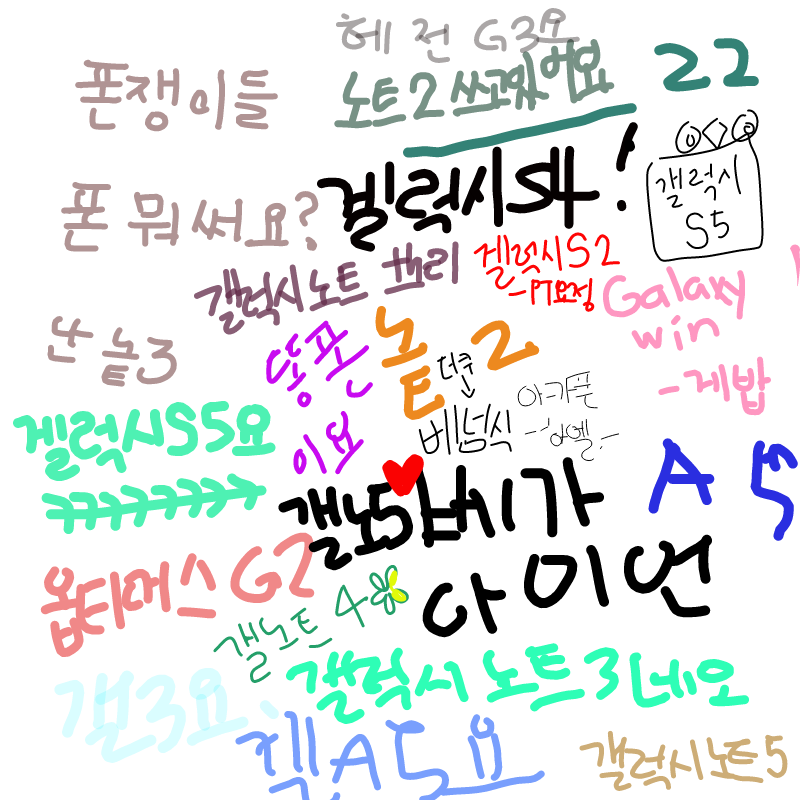 헤 전 G3요
폰쟁이들
노트2 쓰고있어요
22
겔럭시S4!
갤럭시
S5
폰 뭐써요?
갤럭시노트 쓰리
겔럭시S2
-ㅠ요정
Galaxy
win
-게밥
난 놑3
똥폰
이요
놑2
더쿠
베넘식
아카폰
겔럭시S5요
ㅋㅋㅋㅋㅋㅋㅋ
갤노5
가
A 5
옵티머스 G2
아이언
갤노트 4
갤럭시 노트3네오
갤3요
A5요
갤럭시노트5